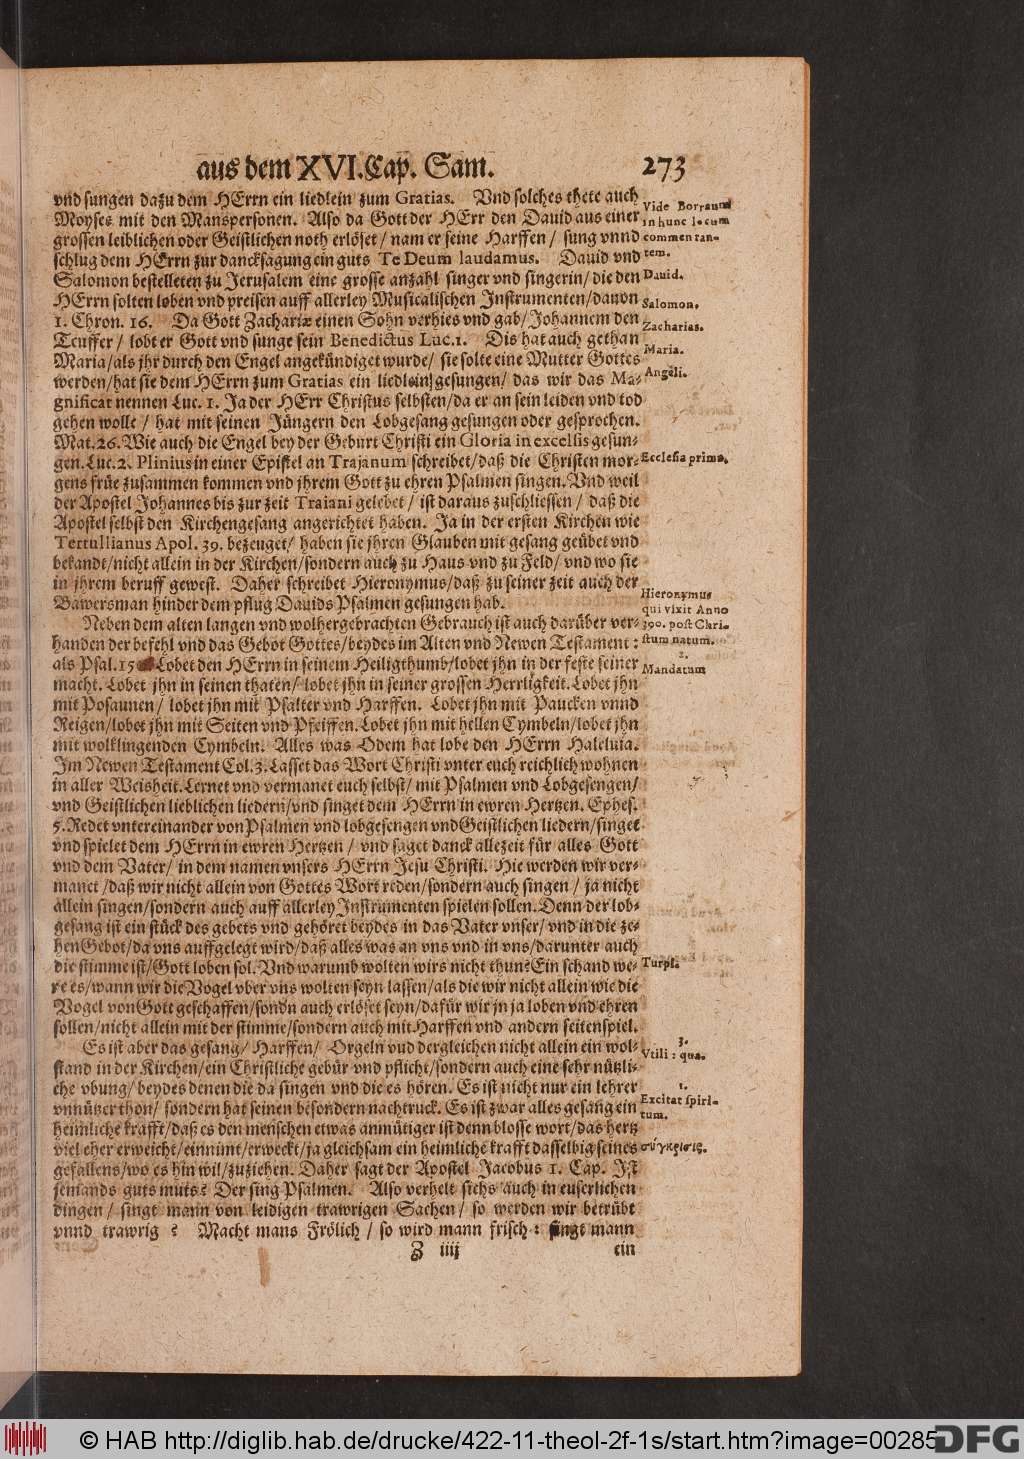 aus dem XVI. Cap. Sam. 273
vnd sungen dazu dem HErrn ein liedlein zum Gratias. Vnd solches thete auch
Moyses mit den Manspersonen. Also da Gott der HErr den Dauid aus einer
grossen leiblichen oder Geistlichen noth erlöset / nam er seine Harffen / sung vnnd
schlug dem HErrn zur dancksagung ein guts Te Deum laudamus. Dauid vnd
Salomon bestelleten zu Jerusalem eine grosse anzahl singer vnd singerin / die den
HErrn solten loben vnd preisen auff allerley Musicalischen Instrumenten / dauon
1. Chron. 16. Da Gott Zachariæ einen Sohn verhies vnd gab / Johannem den
Teuffer / lobt er Gott vnd sunge sein Benedictus Luc. 1. Dis hat auch gethan
Maria / als jhr durch den Engel angekündiget wurde / sie solte eine Mutter Gottes
werden / hat sie dem HErrn zum Gratias ein liedlein gesungen / das wir das Ma-
gnificat nennen Luc. 1. Ja der HErr Christus selbsten / da er an sein leiden vnd tod
gehen wolle / hat mit seinen Jüngern den Lobgesang gesungen oder gesprochen.
Mat. 26. Wie auch die Engel bey der Geburt Christi ein Gloria in excelsis gesun-
gen. Luc. 2. Plinius in einer Epistel an Trajanum schreibet / daß die Christen mor-
gens früe zusammen kommen vnd jhrem Gott zu ehren Psalmen singen. Vnd weil
der Apostel Johannes bis zur zeit Traiani gelebet / ist daraus zuschliessen / daß die
Apostel selbst den Kirchengesang angerichtet haben. Ja in der ersten Kirchen wie
Tertullianus Apol. 39. bezeuget / haben sie jhren Glauben mit gesang geübet vnd
bekandt / nicht allein in der Kirchen / sondern auch zu Haus vnd zu Feld / vnd wo sie
in jhrem beruff gewest. Daher schreibet Hieronymus / daß zu seiner zeit auch der
Bawersman hinder dem pflug Dauids Psalmen gesungen hab.
Neben dem alten langen vnd wolhergebrachten Gebrauch ist auch darüber ver-
handen der befehl vnd das Gebot Gottes / beydes im Alten vnd Newen Testament :
als Psal. 15 Lobet den HErrn in seinem Heiligthumb / lobet jhn in der feste seiner
macht. Lobet jhn in seinen thaten / lobet jhn in seiner grossen Herrligkeit. Lobet jhn
mit Posaunen / lobet jhn mit Psalter vnd Harffen. Lobet jhn mit Paucken vnnd
Reigen / lobet jhn mit Seiten vnd Pfeiffen. Lobet jhn mit hellen Cymbeln / lobet jhn
mit wolklingenden Cymbeln. Alles was Odem hat lobe den HErrn Haleluia.
Im Newen Testament Col. 3. Lasset das Wort Christi vnter euch reichlich wohnen
in aller Weisheit. Lernet vnd vermanet euch selbst / mit Psalmen vnd Lobgesengen /
vnd Geistlichen lieblichen liedern / vnd singet dem HErrn in ewren Hertzen. Ephes.
5. Redet vntereinander von Psalmen vnd lobgesengen vnd Geistlichen liedern / singet
vnd spielet dem HErrn in ewren Hertzen / vnd saget danck allezeit für alles Gott
vnd dem Vater / in dem namen vnsers HErrn Jesu Christi. Hie werden wir ver-
manet / daß wir nicht allein von Gottes Wort reden / sondern auch singen / ja nicht
allein singen / sondern auch auff allerley Instrumenten spielen sollen. Denn der lob-
gesang ist ein stück des gebets vnd gehöret beydes in das Vater vnser / vnd in die ze-
hen Gebot / da vns auffgelegt wird / daß alles was an vns vnd in vns / darunter auch
die stimme ist / Gott loben sol. Vnd warumb wolten wirs nicht thun? Ein schand we-
re es / wann wir die Vogel vber vns wolten seyn lassen / als die wir nicht allein wie die
Vogel von Gott geschaffen / sondn auch erlöset seyn / dafür wir jn ja loben vnd ehren
sollen / nicht allein mit der stimme / sondern auch mit Harffen vnd andern seitenspiel.
Es ist aber das gesang / Harffen / Orgeln vnd dergleichen nicht allein ein wol-
stand in der Kirchen / ein Christliche gebür vnd pflicht / sondern auch eine sehr nützli-
che vbung / beydes denen die da singen vnd die es hören. Es ist nicht nur ein lehrer
vnnützer thon / sondern hat seinen besondern nachtruck. Es ist zwar alles gesang ein
heimliche krafft / daß es den menschen etwas anmütiger ist denn blosse wort / das hertz
viel eher erweicht / einnimt / erweckt / ja gleichsam ein heimliche krafft dasselbig seines
gefallens / wo es hin wil / zuziehen. Daher sagt der Apostel Jacobus 1. Cap. Ist
jemands guts muts? Der sing Psalmen. Also verhelt sichs auch in euserlichen
dingen / singt mann von leidigen trawrigen Sachen / so werden wir betrübt
vnnd trawrig ? Macht mans Frölich / so wird mann frisch : singt mann
Z iiij ein
Vide Borraum
in hunc locum
commentan-
tem.
Dauid.
Salomon.
Zacharias.
Maria.
Angeli.
Ecclesia prima.
Hieronymus
qui vixit Anno
390. post Chri-
stum natum.
2.
Mandatum
Turpe.
3.
Vtili: qua.
1.
Excitat spiri-
tum.
σύγκρισις.
© HAB http://diglib.hab.de/drucke/422-11-theol-2f-1s/start.htm?image=00285
DFG